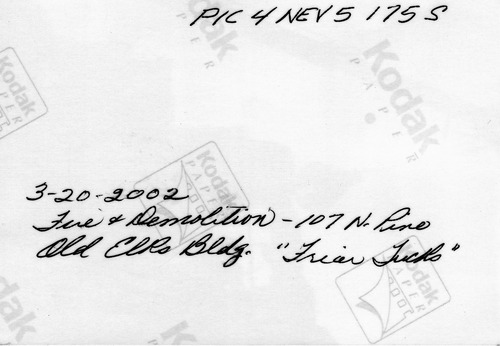 PIC 4 NEV 5 175 S
Kodak
PAPER
Kodak
PAPER
Kodak
3-20-2002
Fire & Demolition - 107 N. Pine
Old Elks Bldg. "Friar Tucks"
Kodak
PAPER
Kodak